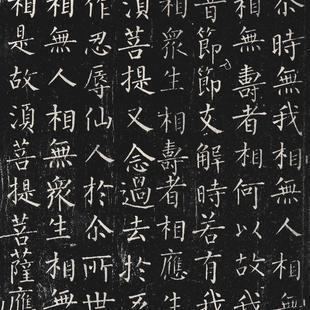 尒時無我相無人相無
相無壽者相何以故我
昔節節支解時若有我
相衆生相壽者相應生
須菩提又念過去於五
作忍辱仙人於尒所世
相無人相無衆生相無
相是故須菩提菩薩應